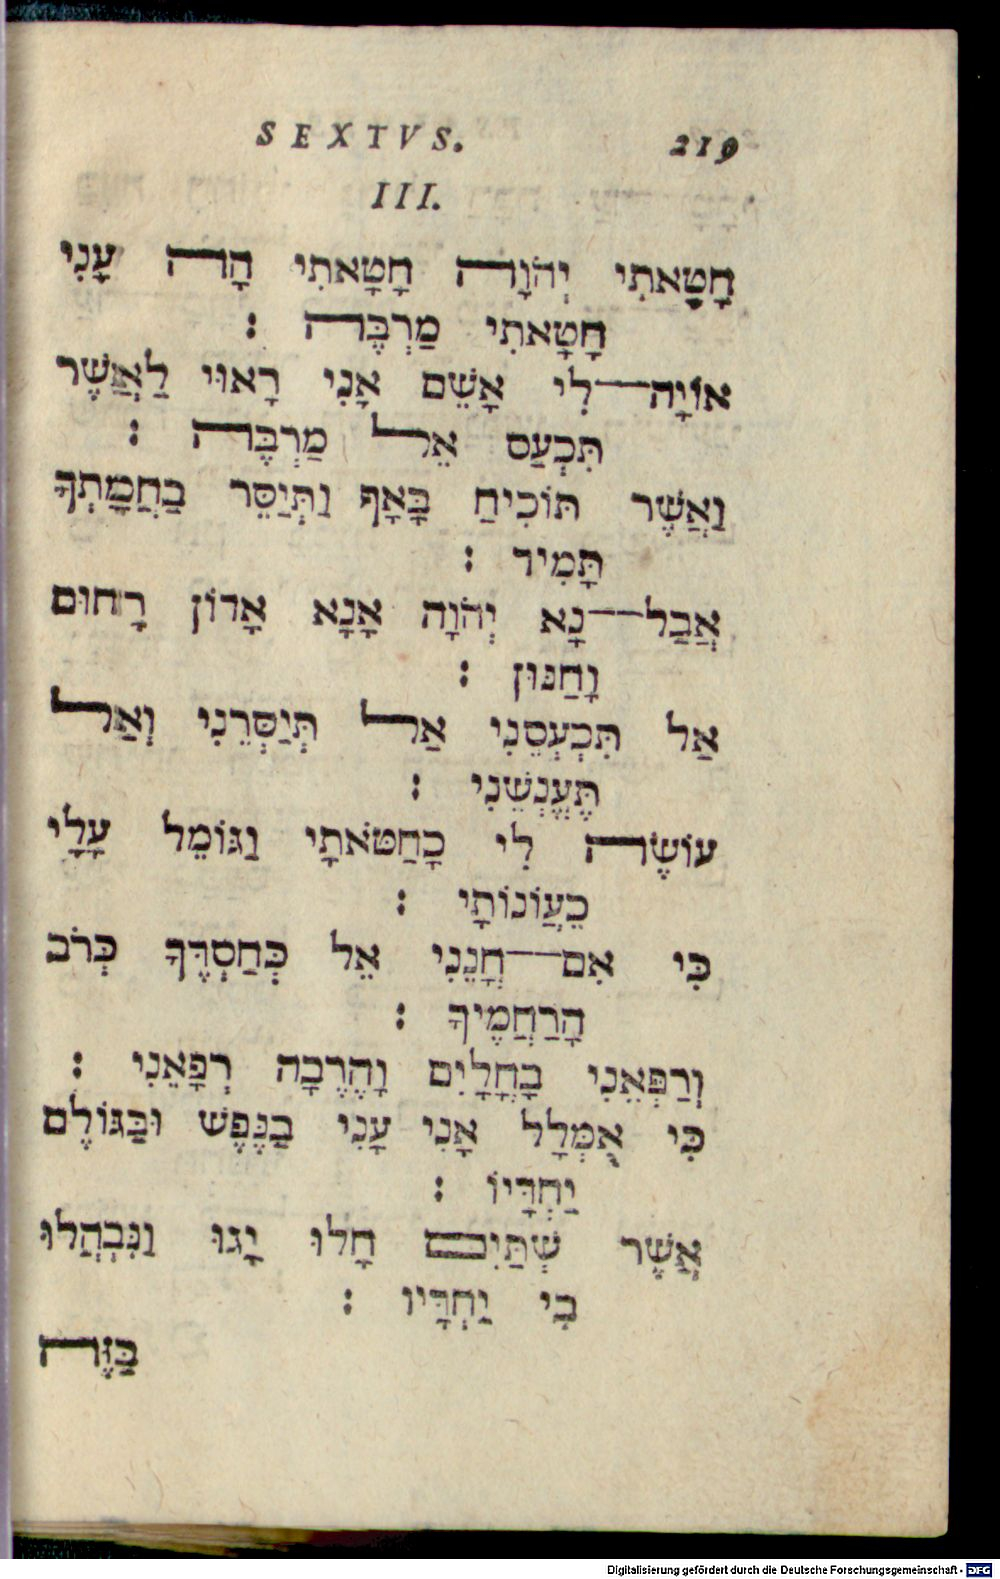 SEXTVS. 219
III.
חָטָאתִי יְהֹוָה חָטָאתִי הָהּ עָנִי
חָטָאתִי מַרְבֶּה :
אוֹיָה־לִי אָשֵׁם אָנִי רָאוּי לַאֲשֶׁר
תִּכְעַס אֵל מַרְבֶּה :
וַאֲשֶׁר תּוֹכִיחַ בָּאַף וַתְּיַסֵּר בַּחֲמָתְךָ
תָּמִיד :
אֲבַל־נָא יְהֹוָה אָנָא אָדוֹן רָחוּם
וְחַנּוּן :
אַל תִּכְעְסֵנִי אַל תְּיַסְּרֵנִי וְאַל
תֶּעֱנְשֵׁנִי :
עוֹשֶׂה לִי כָּחַטֹּאתָי וַגּוֹמֵל עָלָי
כַעֲוֹנוֹתָי :
כִּי אִם־חָנֵּנִי אֵל כְּחַסְדֶּךָ כְּרֹב
הָרַחֲמֶיךָ :
וְרַפְּאֵנִי בָּחֳלָיִם וָהֶרֶבָה רְפָאֵנִי :
כִּי אֻמְלָל אָנִי עָנִי בַנֶּפֶשׁ וּבַגּוֹלֶם
יַחְדָּיו :
אֲשֶׁר שְׁתַּיִם חָלוּ יָגוּ וַנִּבְהֲלוּ
בִי יַחְדָּיו :
בַּזֶּה
Digitalisierung gefördert durch die Deutsche Forschungsgemeinschaft - DFG